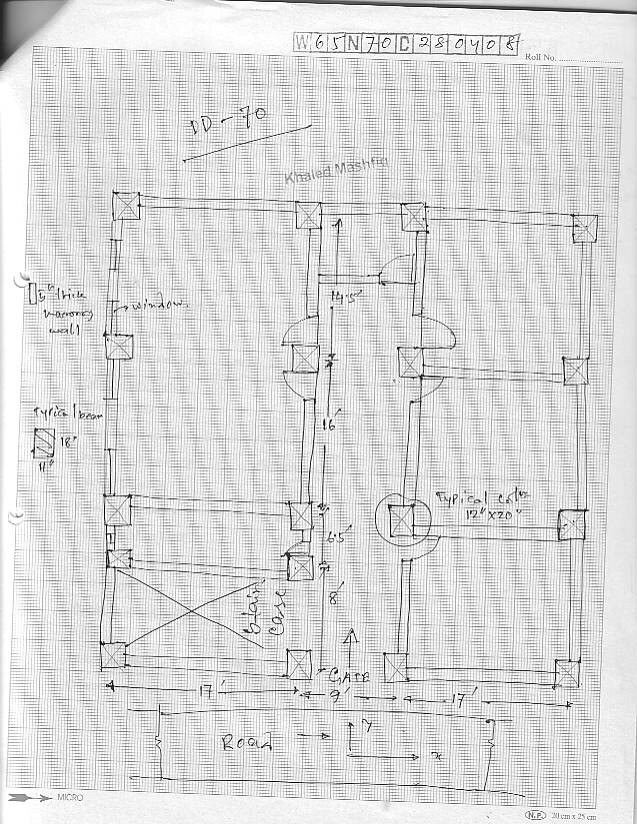 W65N70C280408
Roll No.
DD-70
Khaled Mashfiq
14.5'
5" thick
masonry
wall
window.
Typical beam
18"
11"
16'
Typical colm
12" x 20"
6.5'
8'
Stair
Case
GATE
17'
9'
17'
Road
y
x
MICRO
N.P. 20 cm x 25 cm